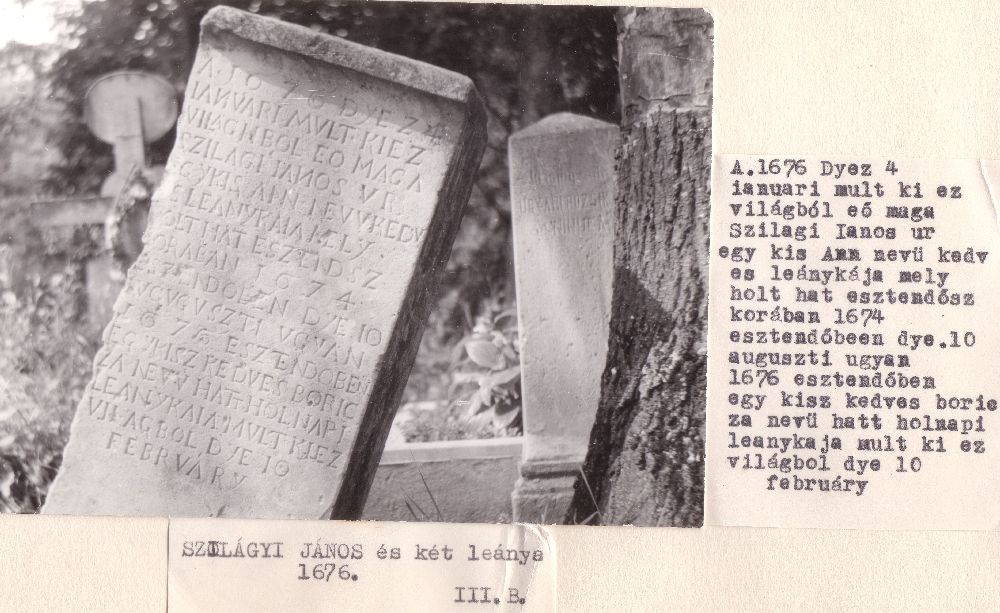 A·1676 DYEZ 4
IANVARI MVLT KI EZ
VILAGHBOL EO MAGA
SZILAGI IANOS VR
EGY KIS ANN NEVV KEDV
ES LEANYKAIA MELY
HOLT HAT ESZTENDŐSZ
KORABAN 1674
ESZTENDŐBEN DYE 10
AVGVSZTI VGYAN
1676 ESZTENDŐBEN
EGY KISZ KEDVES BORIC
ZA NEVV HATT HOLNAPI
LEANYKAIA MVLT KI EZ
VILAGBOL DYE 10
FEBRVARY
A.1676 Dyez 4
ianuari mult ki ez
világból eó maga
Szilagi Ianos ur
egy kis Ann nevü kedv
es leánykája mely
holt hat esztendősz
korában 1674
esztendőbeen dye.10
auguszti ugyan
1676 esztendőben
egy kisz kedves boric
za nevü hatt holnapi
leanykaja mult ki ez
világbol dye 10
február​y
SZILÁGYI JÁNOS és két leánya
1676.
III. B.